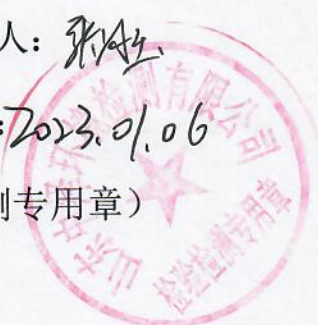 人：张
：2023.01.06
测专用章）
检测有限公司
山东
检验检测专用章